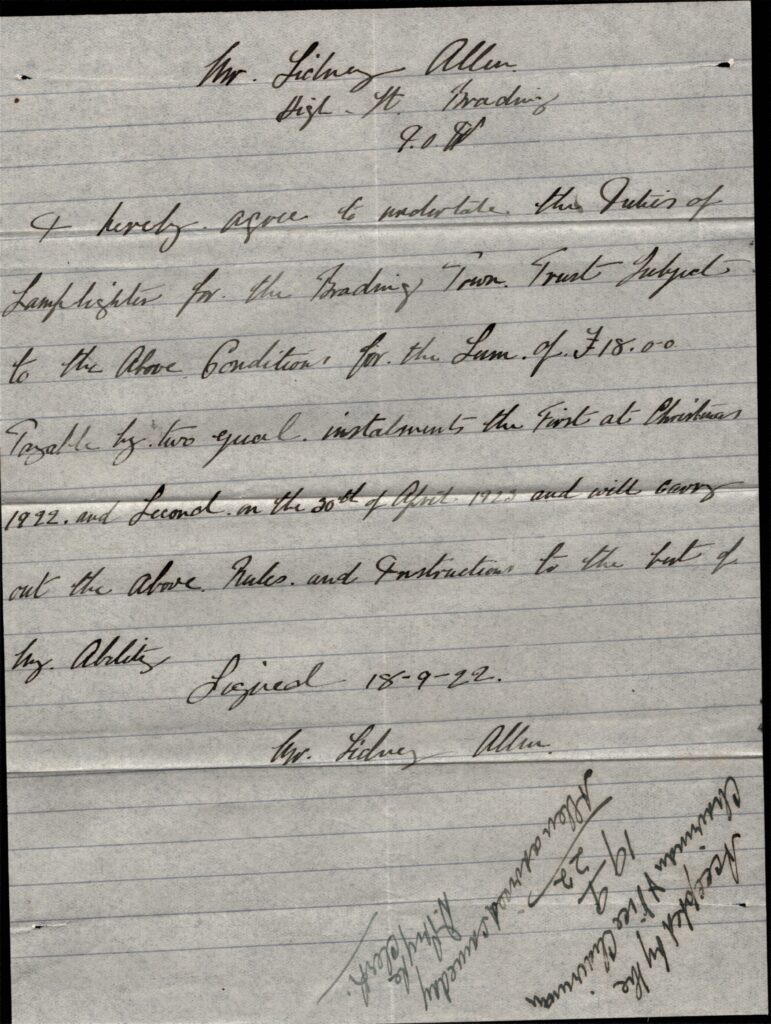 Mr. Sidney Allen
High - St. Brading
I.O.W
I hereby agree to undertake the Duties of
Lamplighter for the Brading Town Trust Subject
to the Above Conditions for the Sum of £18.00
Payable by two equal instalments the First at Christmas
1922. and Second on the 30th of April 1923 and will carry
out the above Rules. and Instructions to the best of
my Ability
Signed 18-9-22.
Mr. Sidney Allen.
Accepted by the
Chairman & Vice Chairman
19/9/22
Allen same day
Clerk.